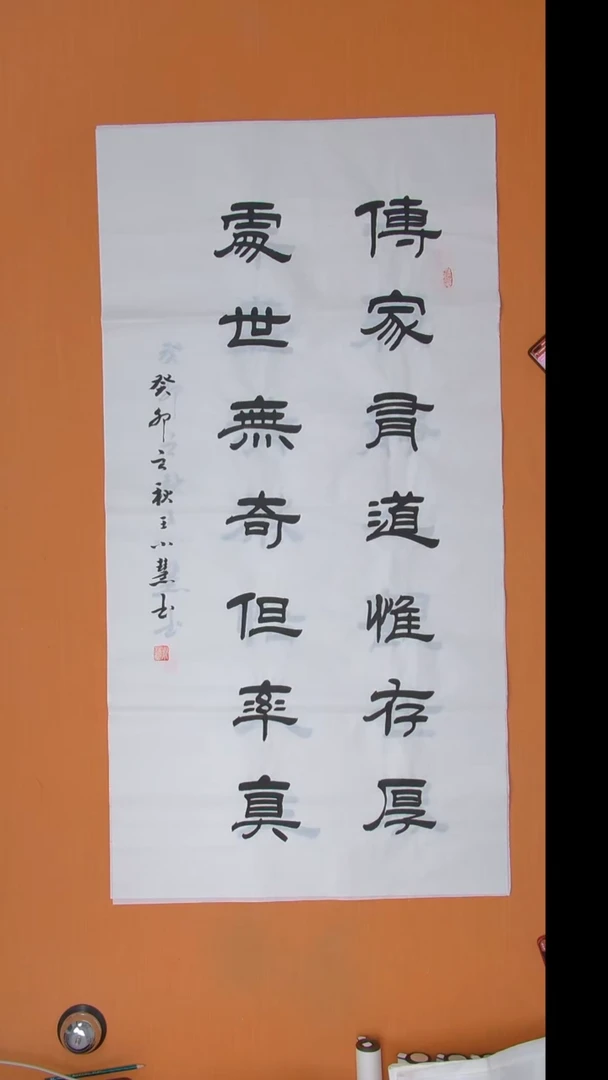 傳家有道惟存厚
處世無奇但率真
癸卯之秋王小慧书